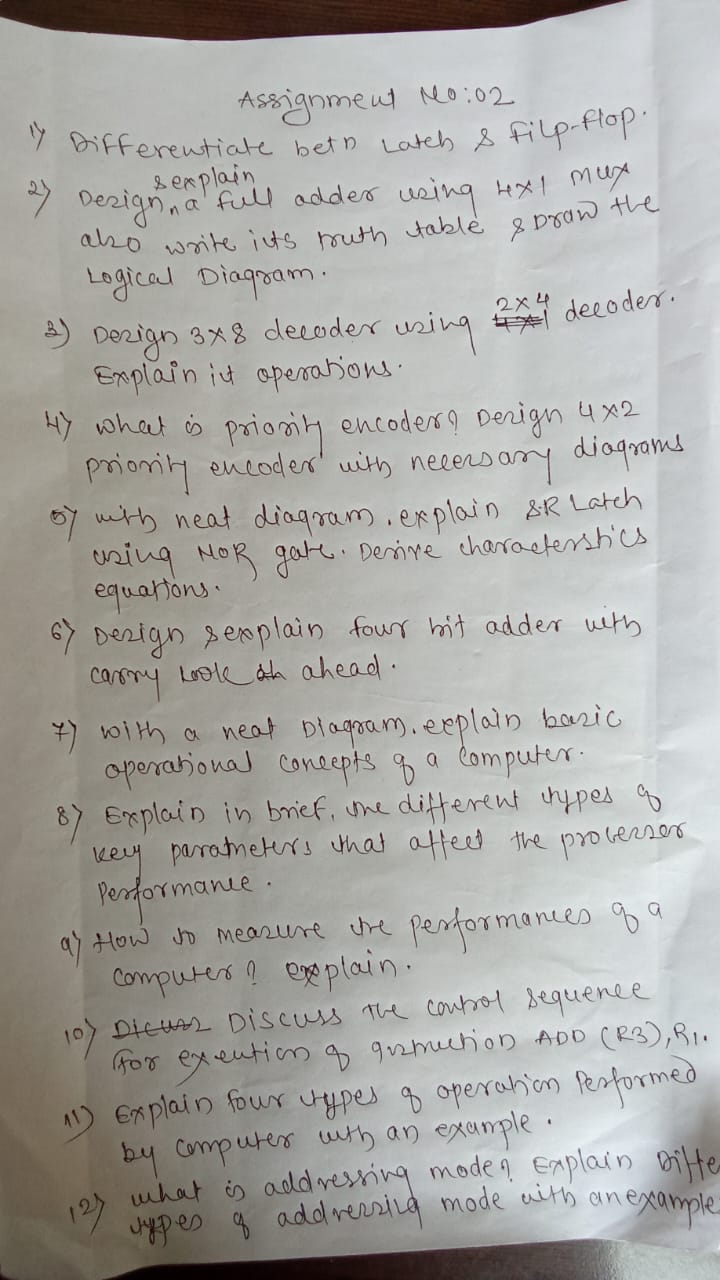 Assignment No:02
1) Differentiate betn Latch & Filp-flop.
& explain
2) Design, a full adder using 4x1 mux
also write its truth table & Draw the
Logical Diagram.
3) Design 3x8 decoder using 2x4 decoder.
Explain it operations.
4) what is priority encoder? Design 4x2
priority encoder with necessary diagrams
5) with neat diagram, explain S-R Latch
using NOR gate. Derive characterstics
equations.
6) Design & explain four bit adder with
carry look ahead.
7) with a neat Diagram, explain basic
operational concepts of a Computer.
8) Explain in brief, the different types of
key parameters that affect the processer
Performance.
9) How to measure the performances of a
Computer? explain.
10) Discuss The control sequence
for exeution of Instruction ADD (R3), R1.
11) Explain four types of operation Performed
by computer with an example.
12) what is addressing mode? Explain Diffe
types of addressing mode with an example